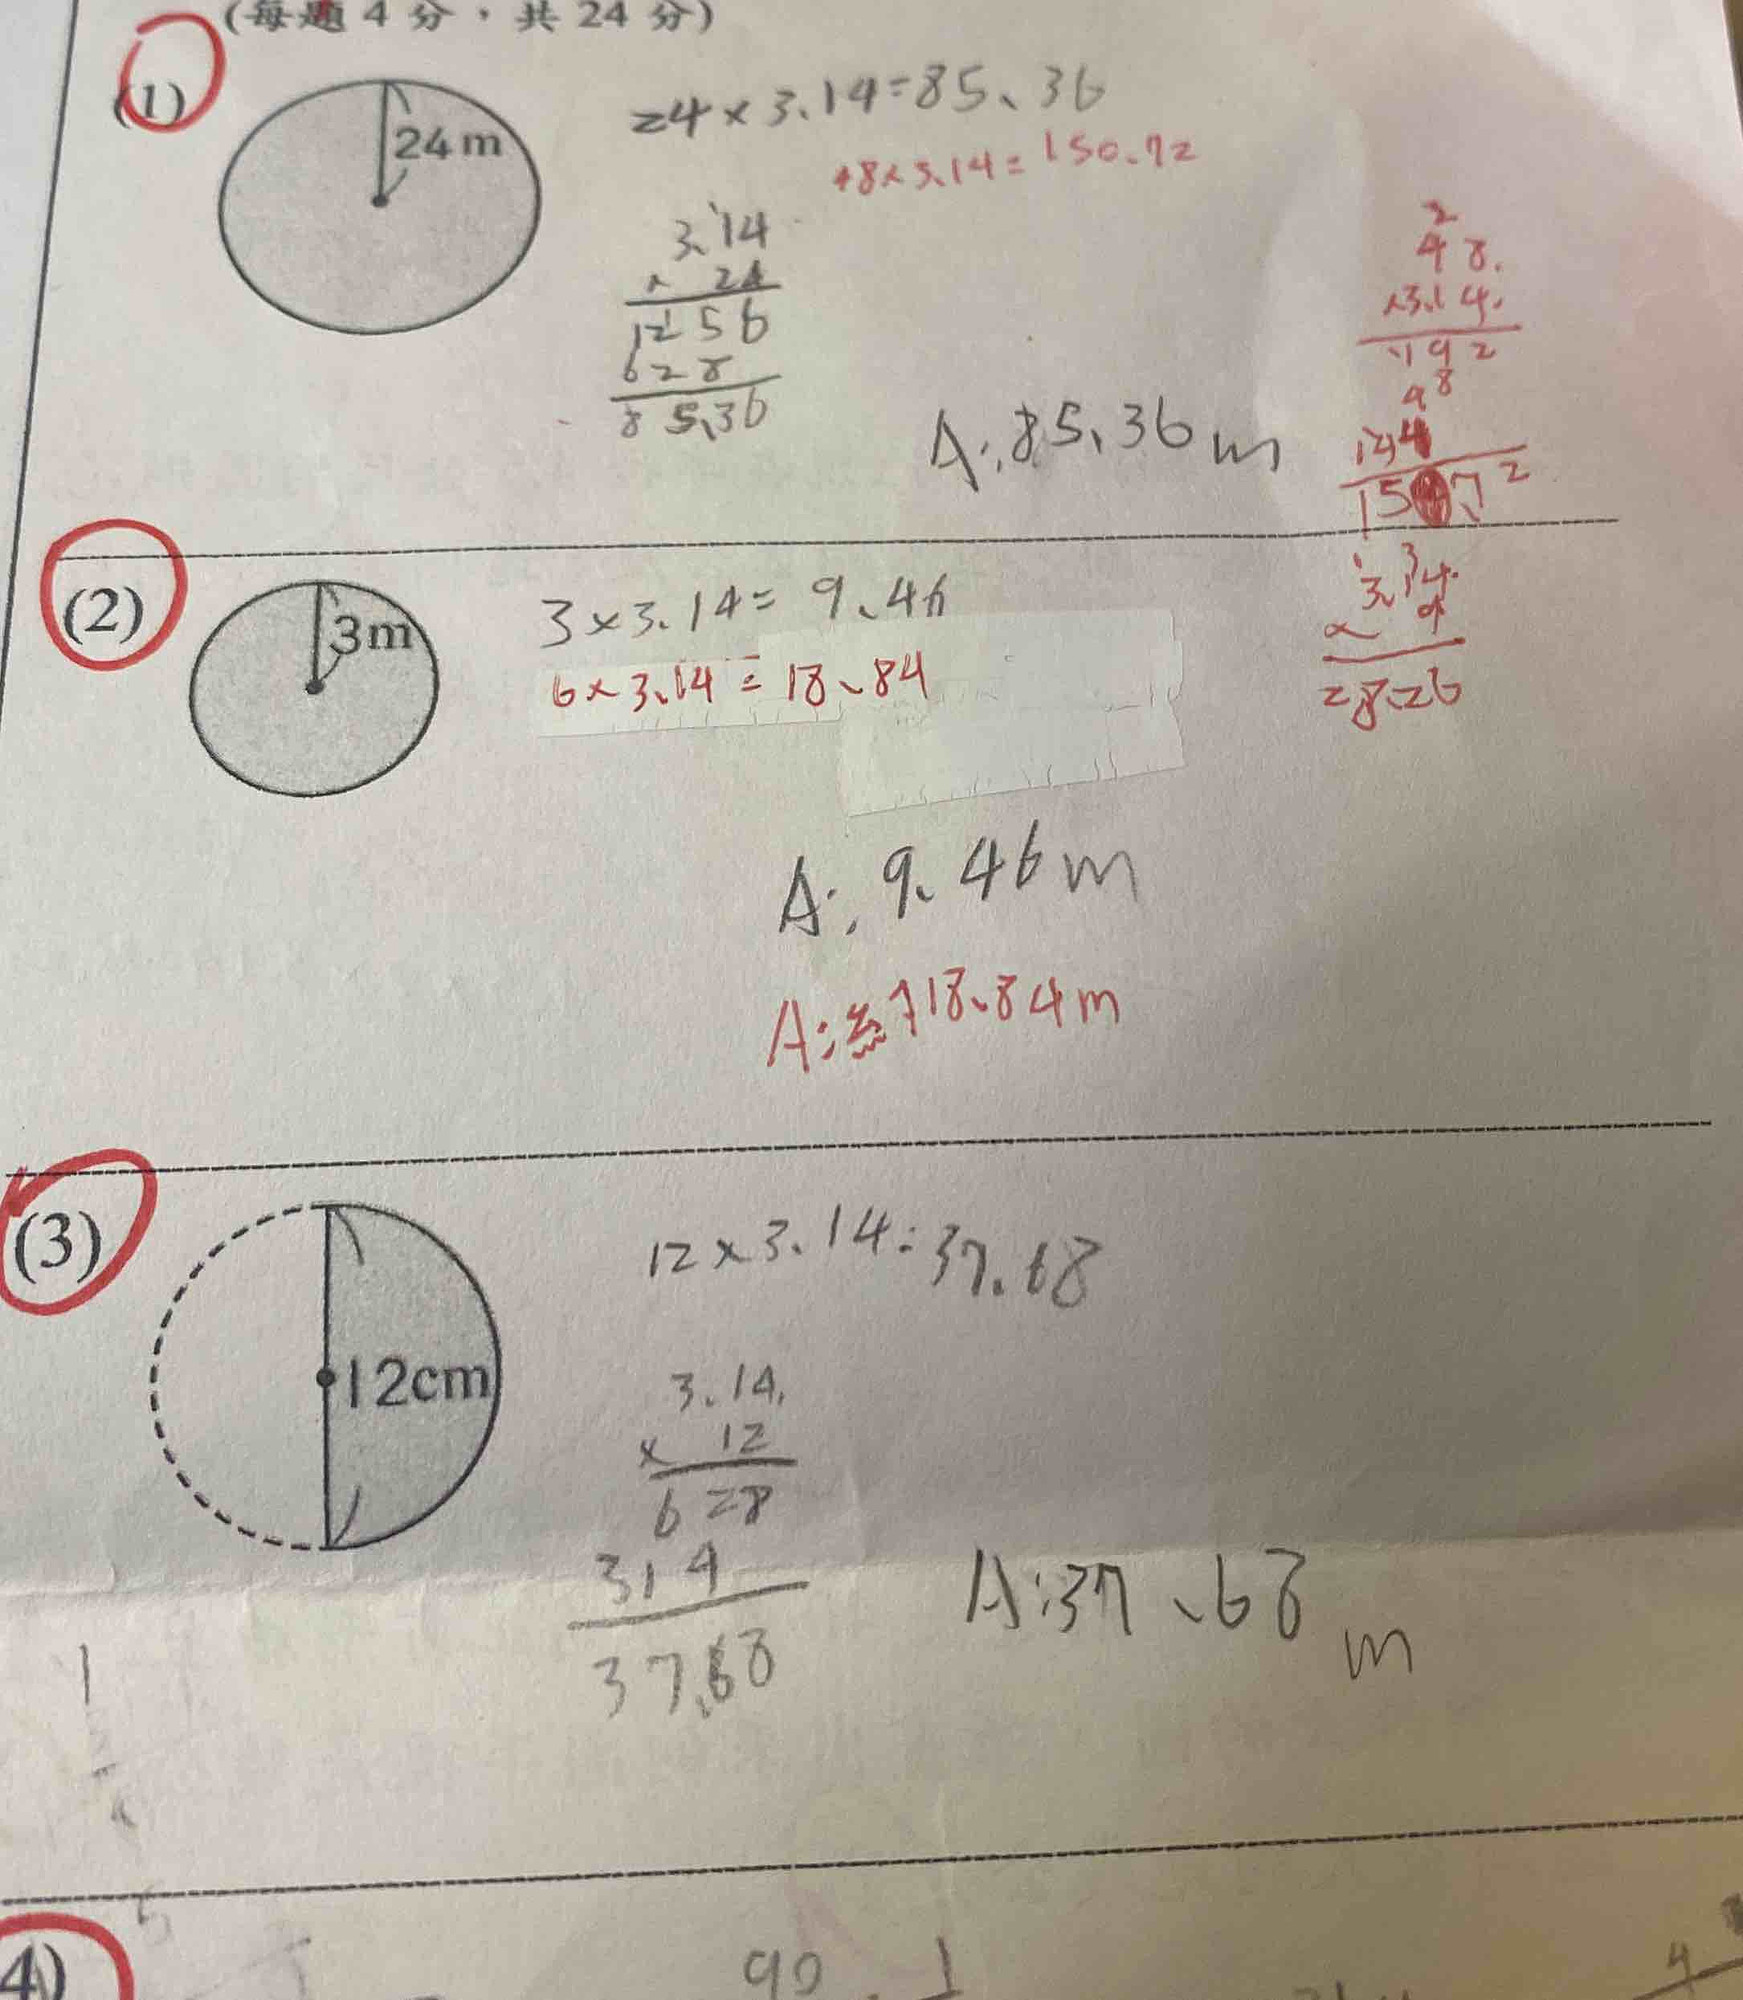 (每題 4 分，共 24 分)
(1)
24m
24×3.14=85.36
48×3.14=150.72
3.14
× 24
1256
628
85.36
A:85.36m
2
48.
×3.14.
192
48
144
15 .72
(2)
3m
3×3.14=9.46
6×3.14=18.84
3.14.
× 9
28.26
A:9.46m
A:約18.84m
(3)
12cm
12×3.14=37.68
3.14.
× 12
628
314
37.68
A:37.68m
1
4)
90
1
4